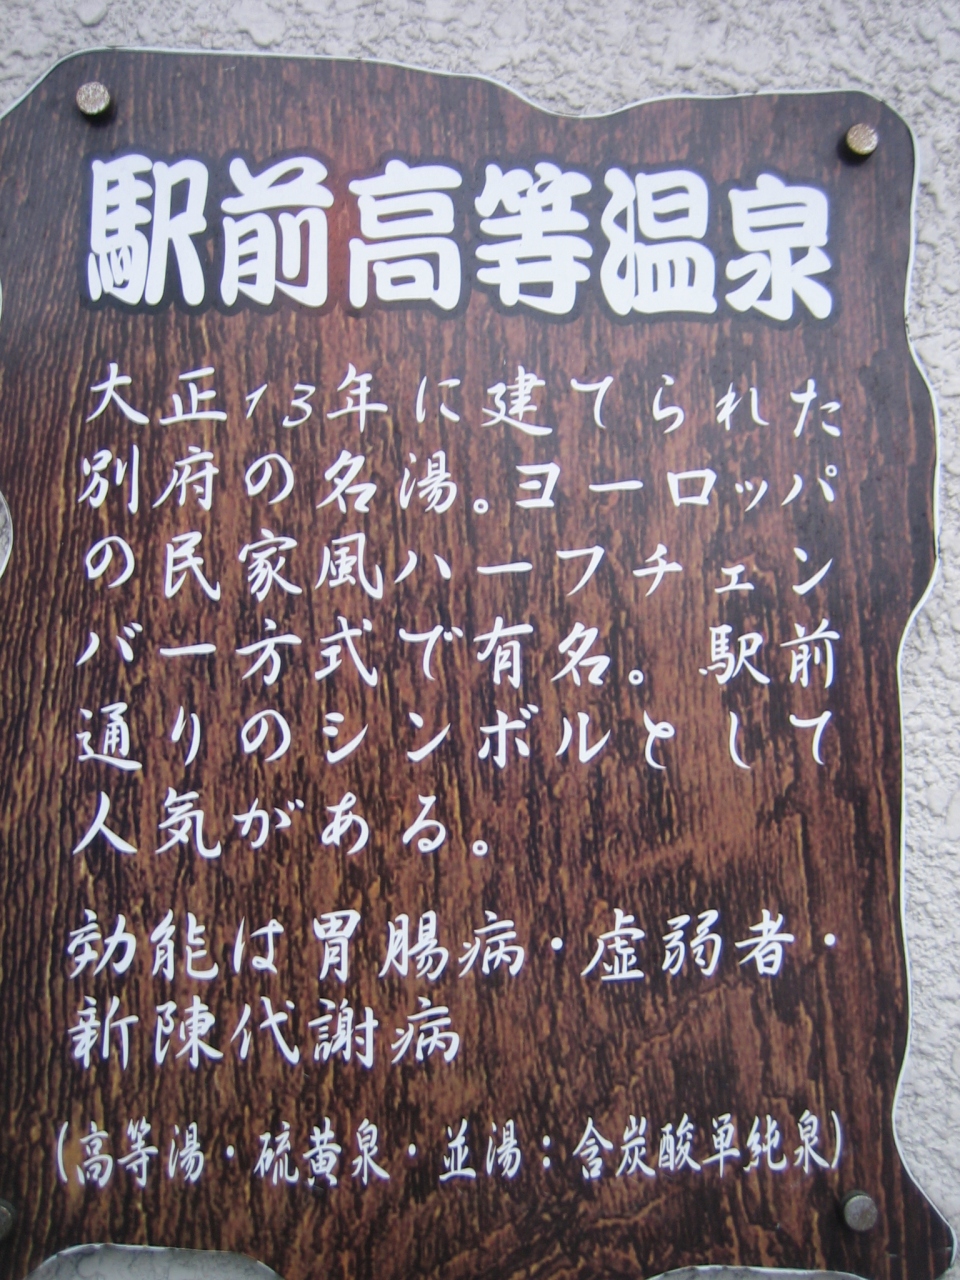 駅前高等温泉
大正13年に建てられた
別府の名湯。ヨーロッパ
の民家風ハーフチェン
バー方式で有名。駅前
通りのシンボルとして
人気がある。
効能は胃腸病・虚弱者・
新陳代謝病
(高等湯・硫黄泉・並湯:含炭酸単純泉)